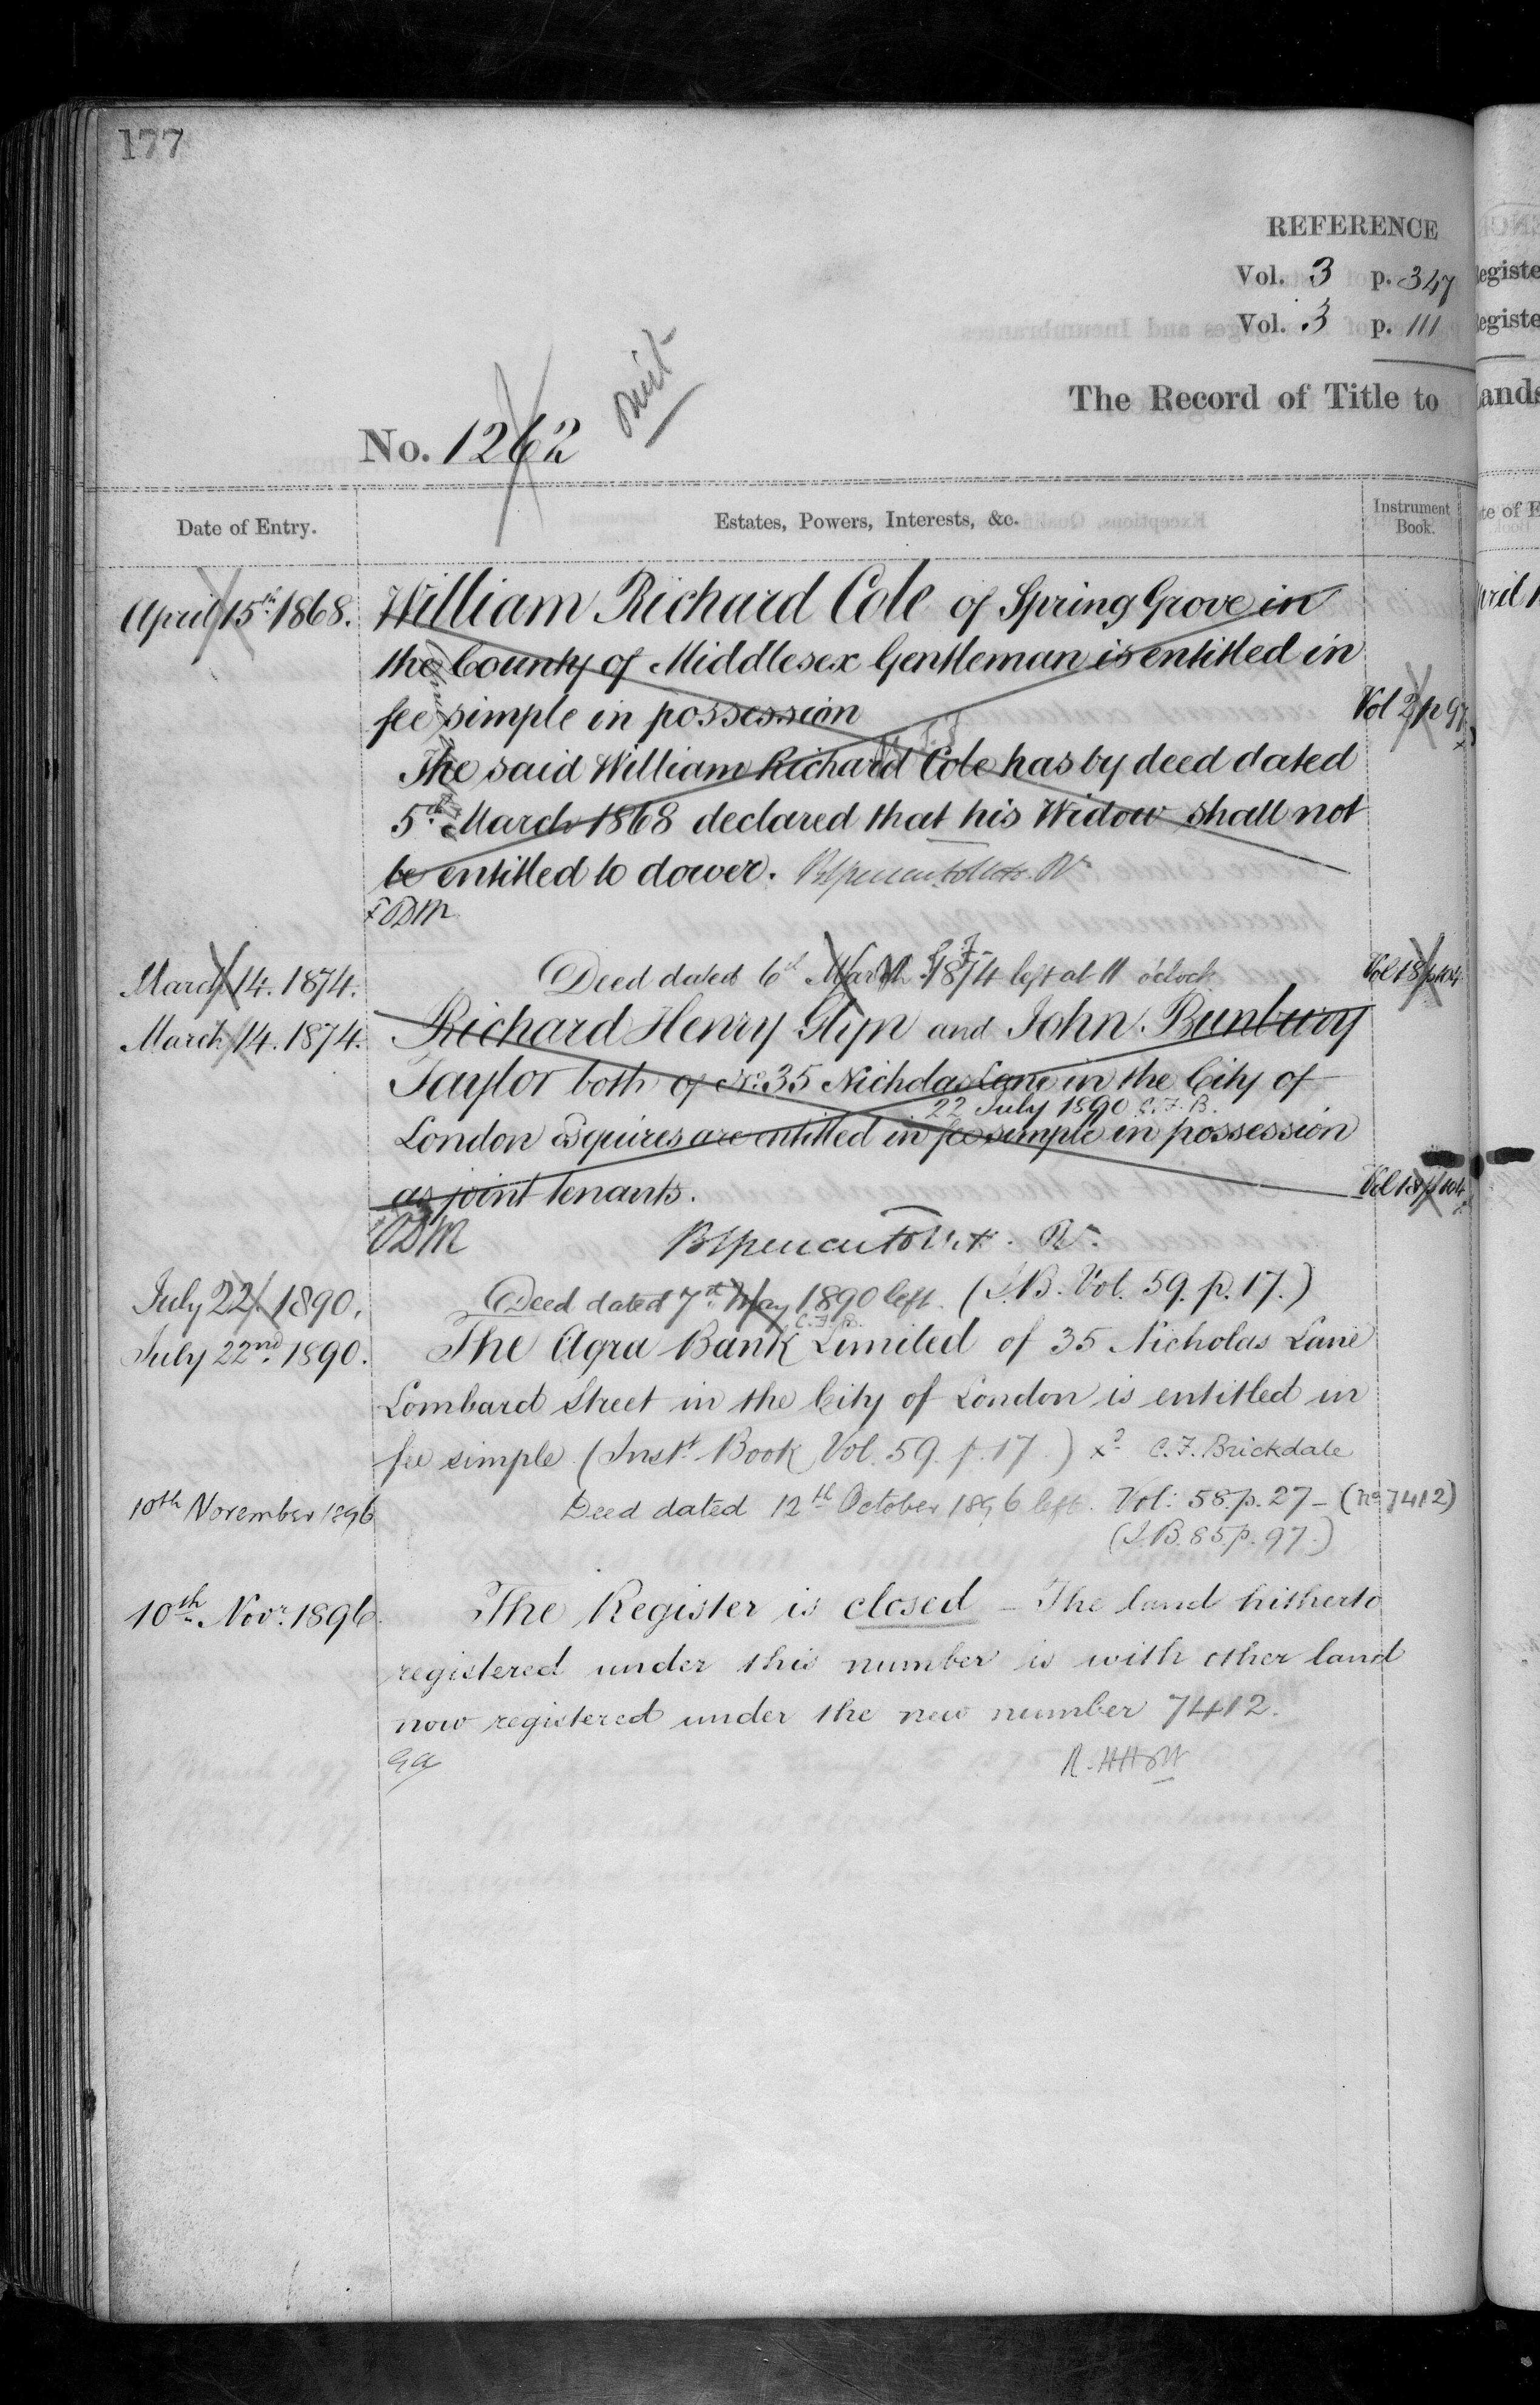 177
REFERENCE
Vol. 3 p. 347
Vol. 3 p. 111
The Record of Title to
No. 1262
Date of Entry.
Estates, Powers, Interests, &c.
Instrument Book.
April 15th 1868. William Richard Cole of Spring Grove in
the County of Middlesex Gentleman is entitled in
fee simple in possession Vol 2 p 97
The said William Richard Cole has by deed dated
5th March 1868 declared that his Widow shall not
be entitled to dower.
March 14. 1874. Deed dated 6th March 1874 left at 11 o'clock Vol 18 p 104
March 14. 1874. Richard Henry Glyn and John Bunbury
Taylor both of No. 35 Nicholas Lane in the City of
22 July 1890 C.F.B.
London Esquires are entitled in fee simple in possession
as joint tenants. Vol 18 p 104
July 22. 1890. Deed dated 7th May 1890 left. (I.B. Vol. 59. p. 17.)
C.F.B.
July 22nd 1890. The Agra Bank Limited of 35 Nicholas Lane
Lombard Street in the City of London is entitled in
fee simple (Inst. Book Vol. 59. p. 17.) C.F. Brickdale
10th November 1896 Deed dated 12th October 1896 left. Vol: 58. p. 27 - (No. 7412)
(I.B. 85. p. 97.)
10th Novr. 1896. The Register is closed - The land hitherto
registered under this number is with other land
now registered under the new number 7412.